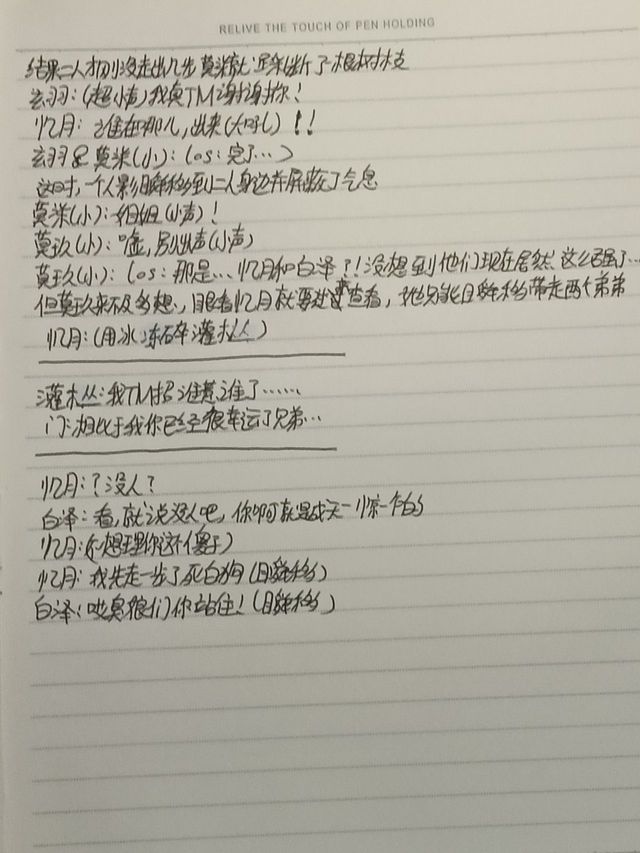 RELIVE THE TOUCH OF PEN HOLDING
结果二人刚没走出几步莫米就踩断了根树枝
玄羽:(超小声)我真TM谢谢你!
忆月:谁在那儿,出来(大吼)!!
玄羽&莫米(小):(os:完了…)
这时,一个人影瞬移到二人身边并屏蔽了气息
莫米(小):姐姐(小声)!
莫玖(小):嘘,别出声(小声)
莫玖(小):(os:那是…忆月和白泽?!没想到他们现在居然这么强了…
但莫玖来不及多想,眼看忆月就要过来查看,她只能瞬移带走两个弟弟
忆月:(用冰冻碎灌木丛)
灌木丛:我TM招谁惹谁了……
门:相比于我你已经很幸运了兄弟…
忆月:?没人?
白泽:看,就说没人吧,你啊就是成天一惊一乍的
忆月:(不想理你这个傻子)
忆月:我先走一步了死白狗(瞬移)
白泽:哎臭狼们你站住!(瞬移)